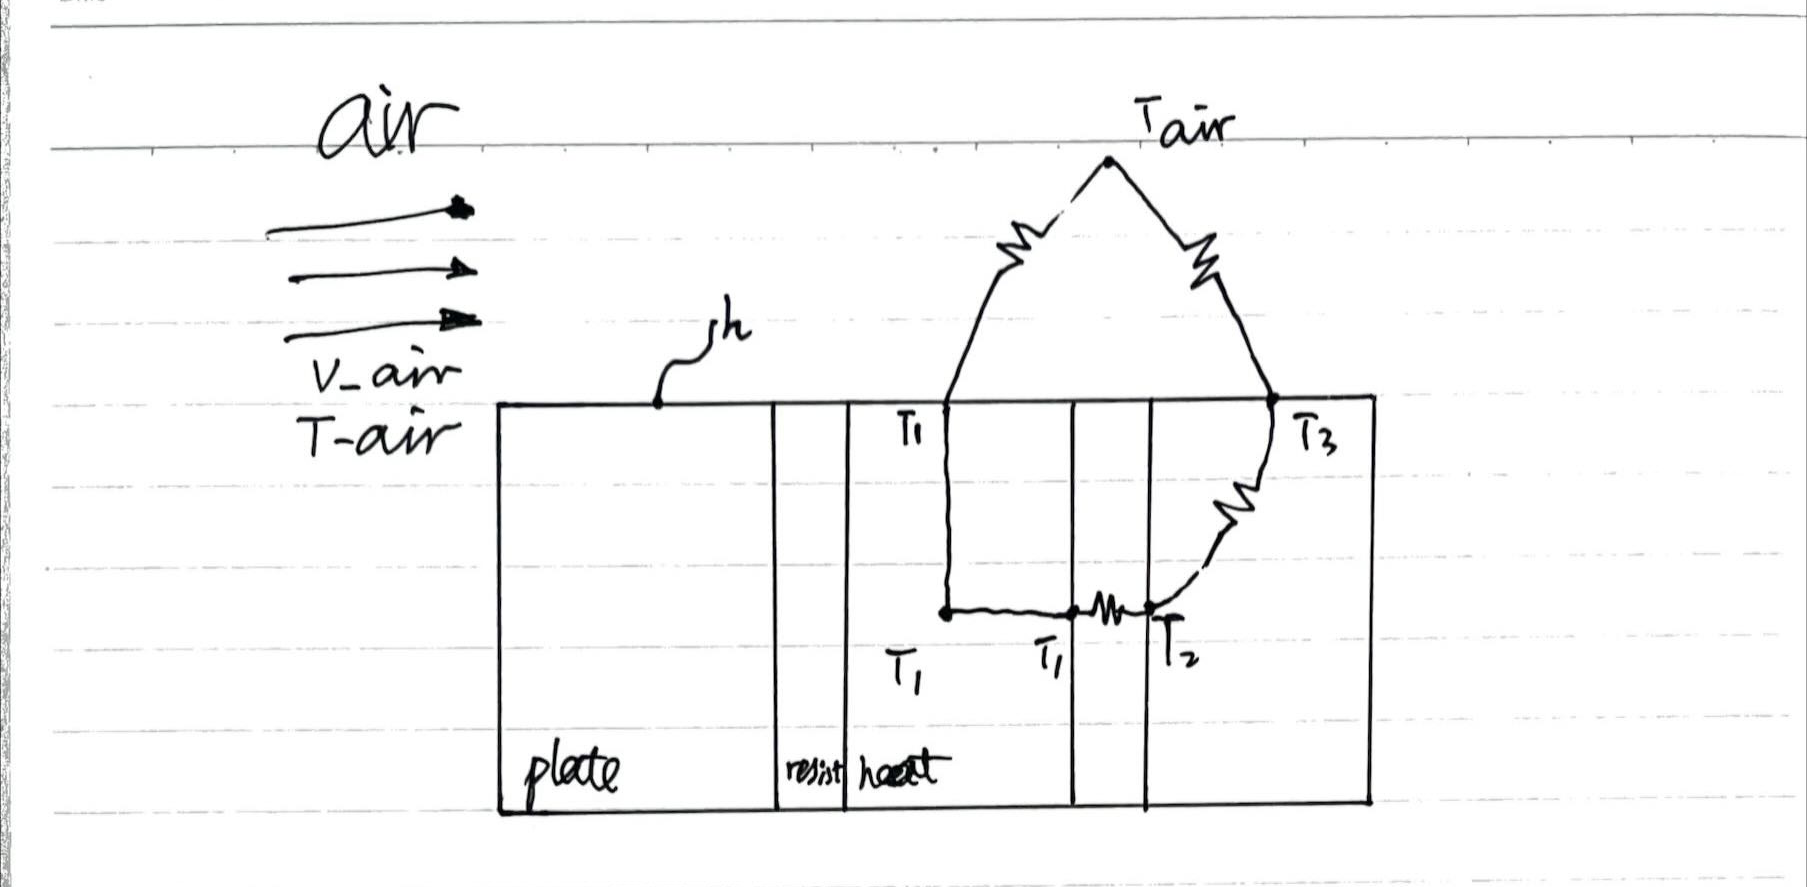 air
Tair
h
V-air
T-air
T1
T3
T1
T1
T2
plate
resist
heat